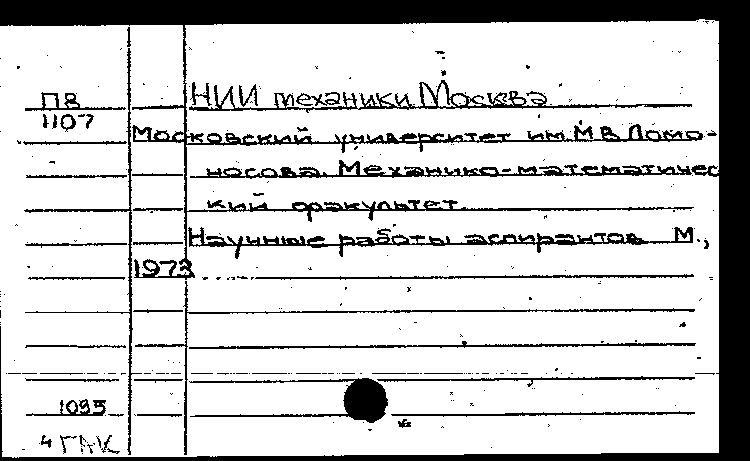 ПВ
1107
НИИ механики Москва
Московский университет им. М В Ломо-
носова. Механико-математичес
кий факультет.
Научные работы аспирантов М.,
1973
1095
4 ГАК